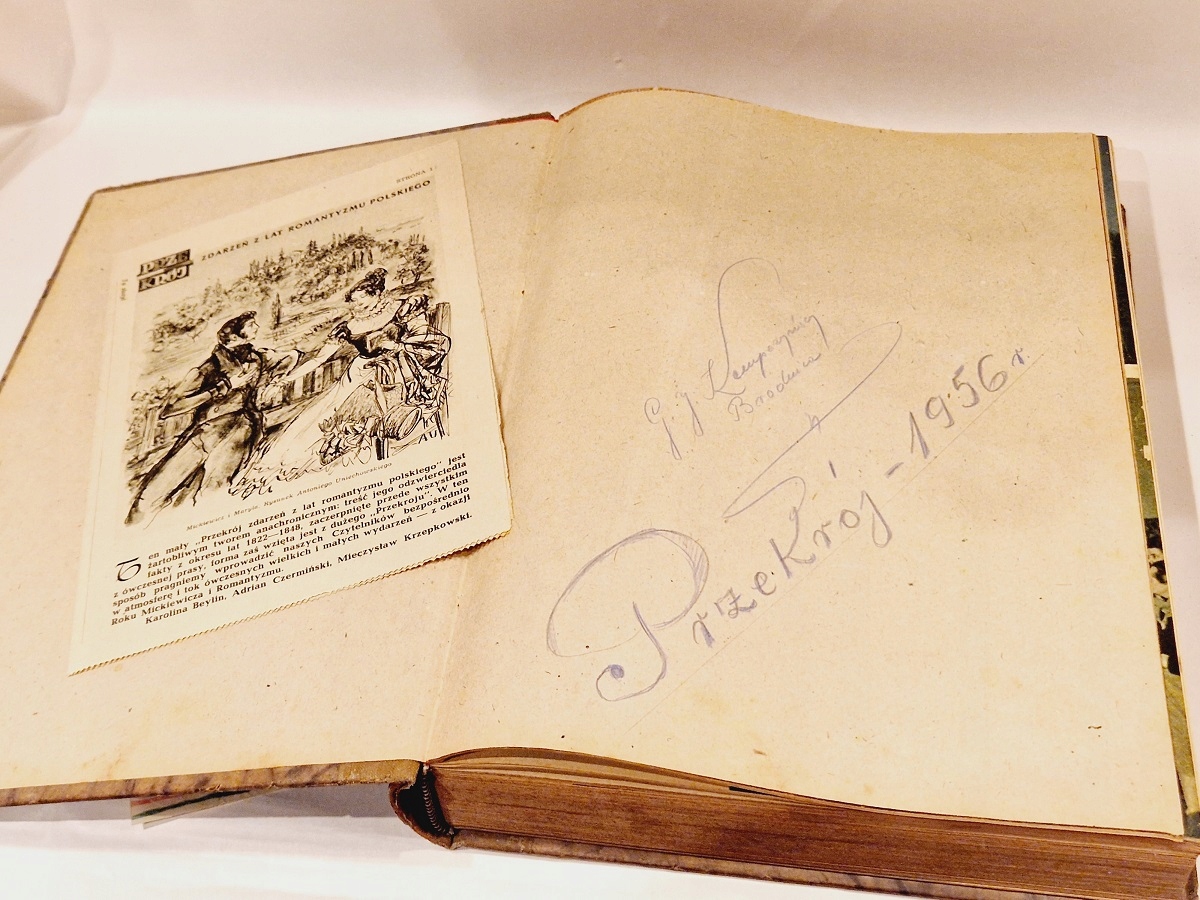 STRONA 1
PRZE
KRÓJ
ZDARZEŃ Z LAT ROMANTYZMU POLSKIEGO
AU
Mickiewicz i Maryla. Rysunek Antoniego Uniechowskiego
Ten mały „Przekrój zdarzeń z lat romantyzmu polskiego" jest
żartobliwym tworem anachronicznym: treść jego odzwierciedla
fakty z okresu lat 1822—1848, zaczerpnięte przede wszystkim
z ówczesnej prasy, forma zaś wzięta jest z dużego „Przekroju". W ten
sposób pragniemy wprowadzić naszych Czytelników bezpośrednio
w atmosferę i tok ówczesnych wielkich i małych wydarzeń — z okazji
Roku Mickiewicza i Romantyzmu.
Karolina Beylin, Adrian Czermiński, Mieczysław Krzepkowski.
G. J.
Brodnica
Przekrój - 1956 r.